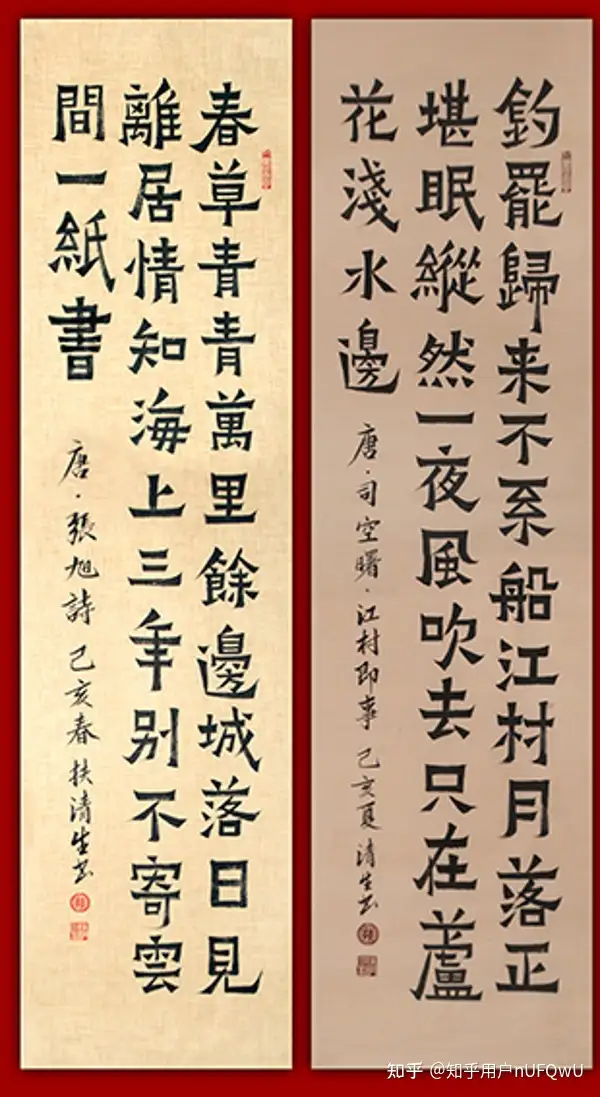 釣罷歸来不系船江村月落正
堪眠縱然一夜風吹去只在蘆
花淺水邊
唐·司空曙·江村即事 己亥夏 清生书
春草青青萬里餘邊城落日見
離居情知海上三年别不寄雲
間一紙書
唐·張旭詩 己亥春 扶清生书
知乎 @知乎用户nUFQwU